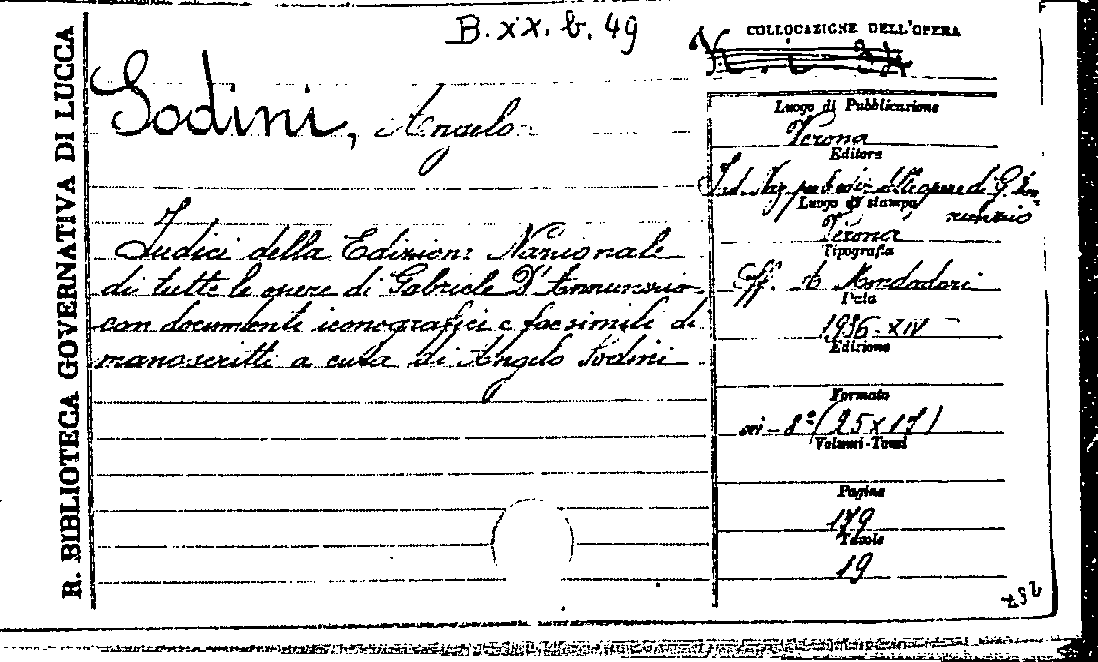 R. BIBLIOTECA GOVERNATIVA DI LUCCA
B. xx. b. 49
COLLOCAZIONE DELL'OPERA
Sodini, Angelo
Indici della Edizione Nazionale
di tutte le opere di Gabriele D'Annunzio
con documenti iconografici e facsimili di
manoscritti a cura di Angelo Sodini
Luogo di Pubblicazione
Verona
Editore
Ist. Naz. per la ediz. delle opere di G. D'An-
nunzio
Luogo di stampa
Verona
Tipografia
Off. A Mondadori
Data
1936-XIV
Edizione
Formato
in-8° (25x17)
Volumi-Tomi
Pagine
179
Tavole
19